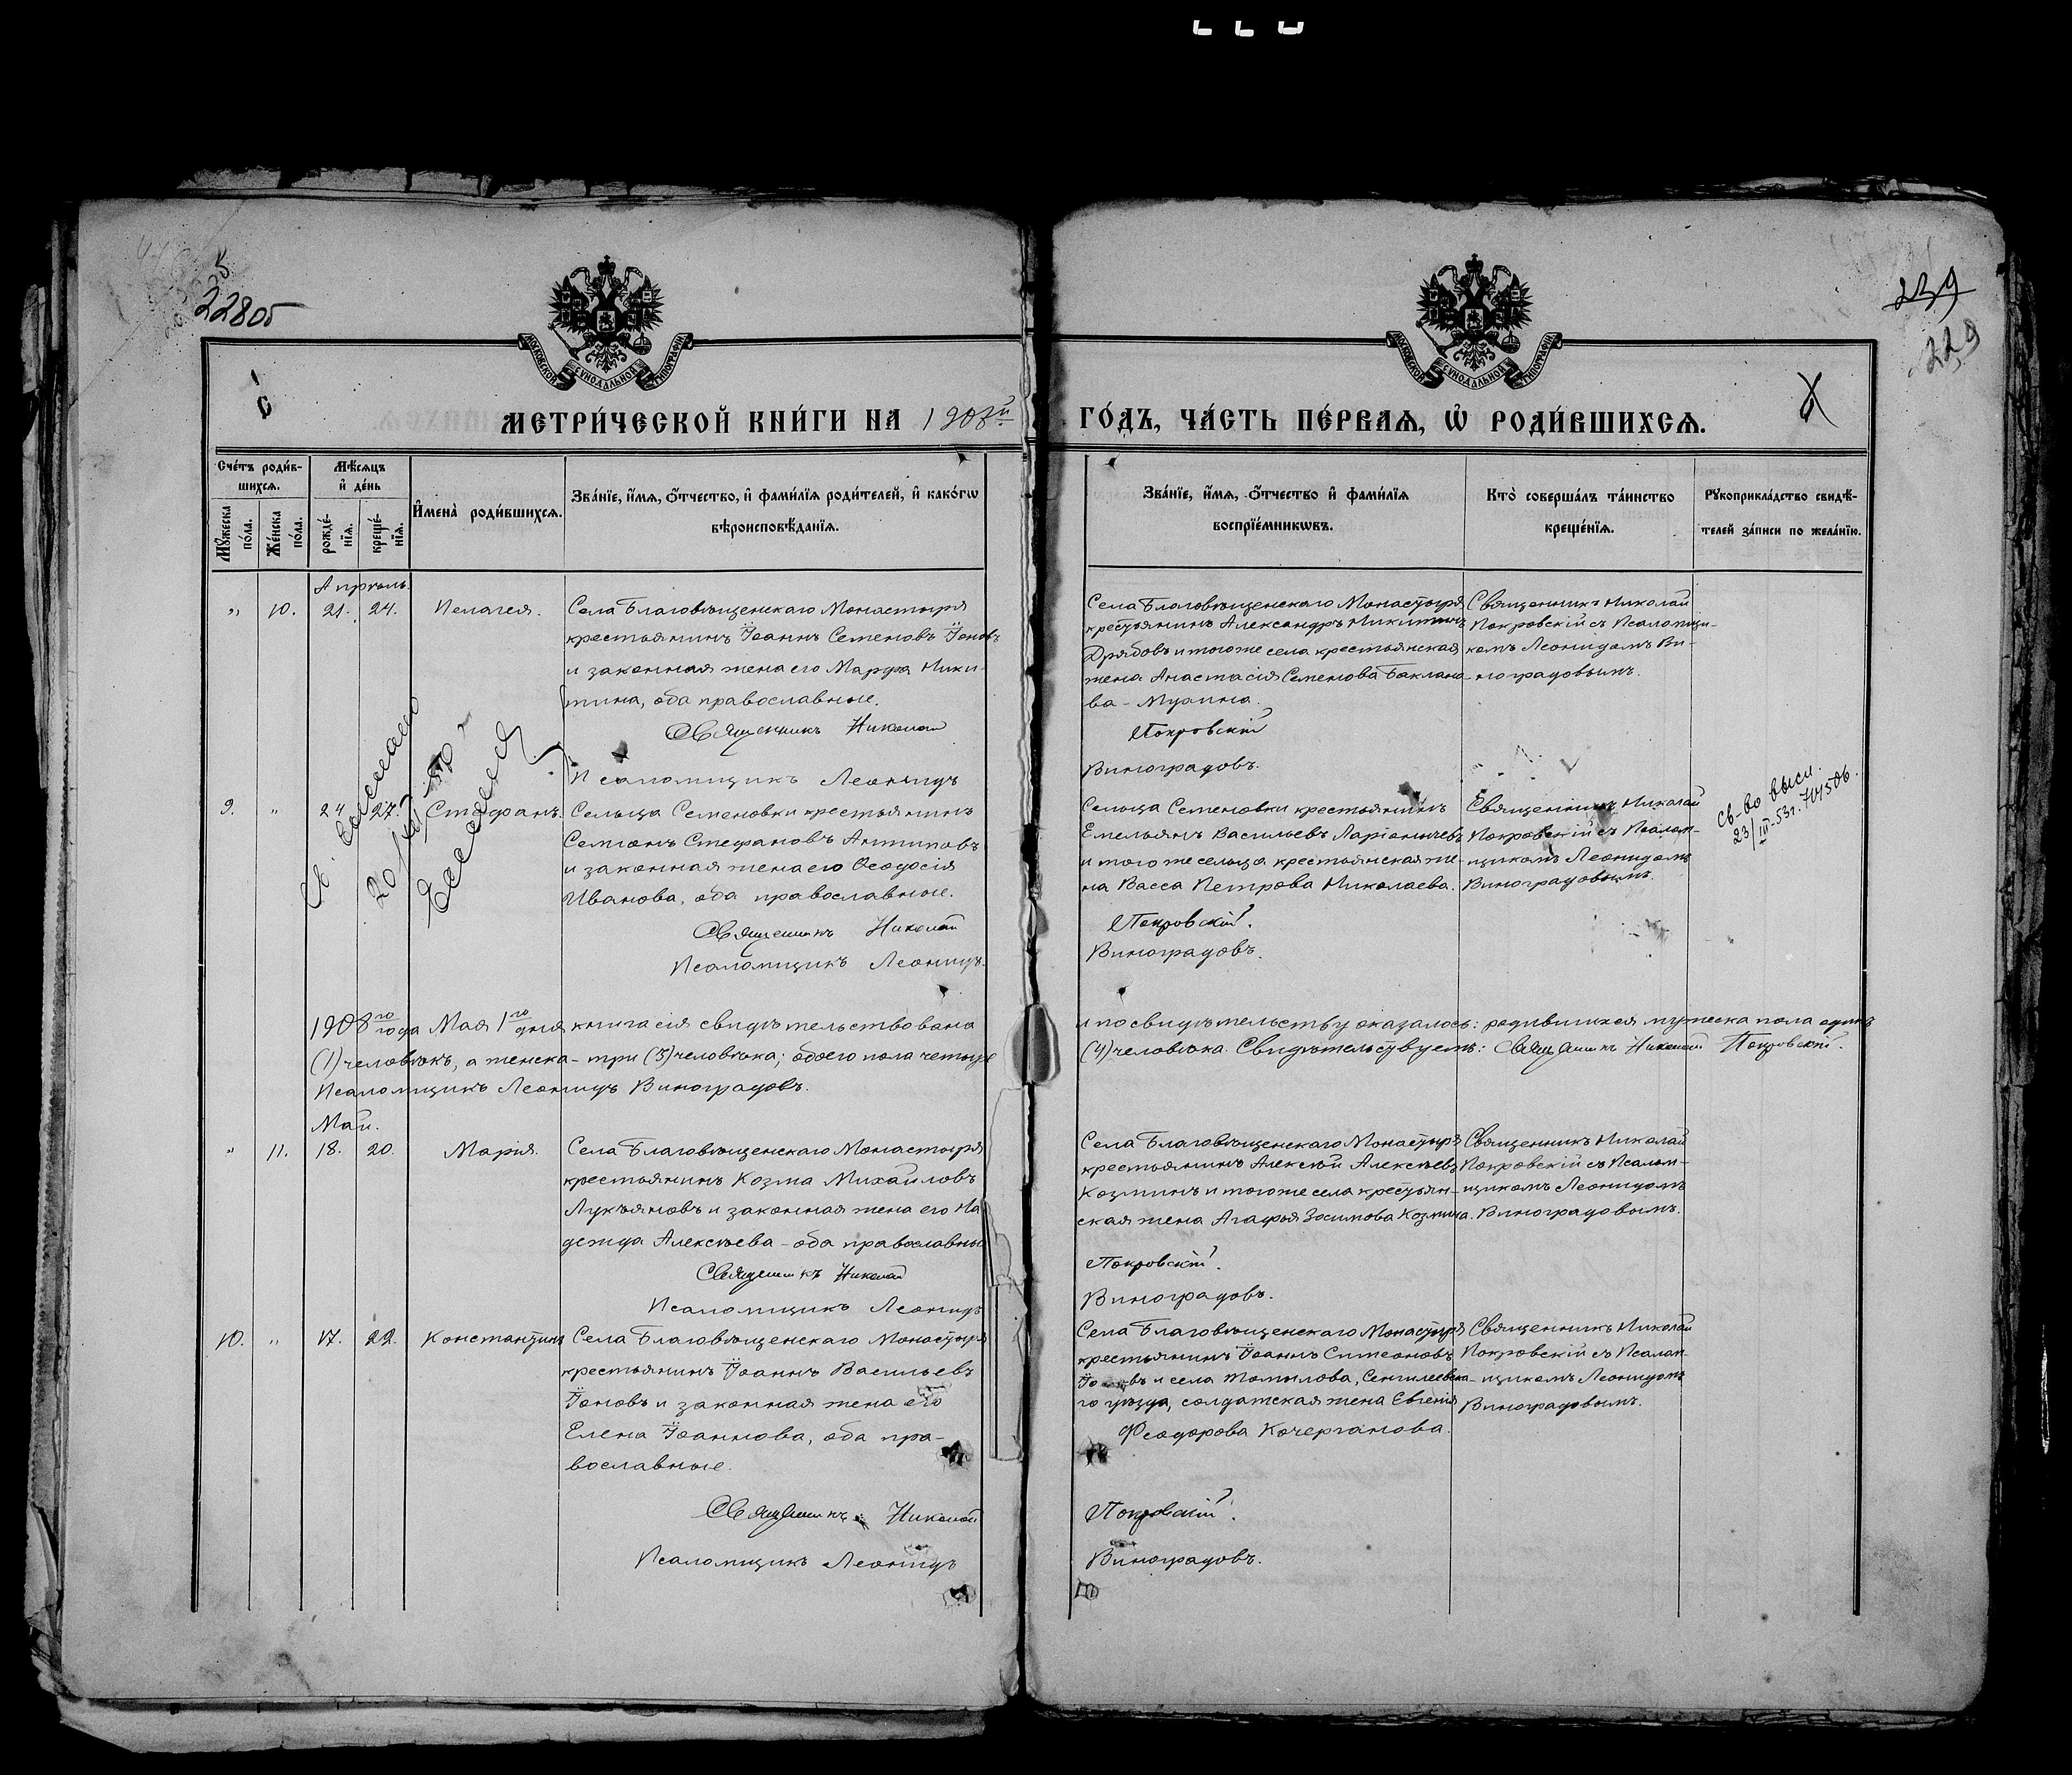 2280б
239
229
МОСКОВСКОЙ СѴНОДАЛЬНОЙ ТИПОГРАФІИ
МОСКОВСКОЙ СѴНОДАЛЬНОЙ ТИПОГРАФІИ
МЕТРИ́ЧЕСКОЙ КНИ́ГИ НА 1908й
ГО́ДЪ, ЧА́СТЬ ПЕ́РВАѦ, Ѡ҆ РОДИ́ВШИХСѦ.
Сче́тъ роди́в-
шихсѧ.
Мꙋ́жеска по́ла.
Же́нска по́ла.
Мѣ́сѧцъ
и҆ де́нь
рожде́-
нїѧ.
креще́-
нїѧ.
И҆мена̀ роди́вшихсѧ.
Зва́нїе, и҆́мѧ, ѻ҆́тчество, и҆ фами́лїѧ роди́телей, и҆ како́гѡ
вѣроисповѣ́данїѧ.
Зва́нїе, и҆́мѧ, ѻ҆́тчество и҆ фами́лїѧ
воспрїе́мникѡвъ.
Кто̀ соверша́лъ та́инство
креще́нїѧ.
Рꙋкоприкла́дство свидѣ́-
телей за́писи по жела́нїю.
Апрѣль.
„ 10. 21. 24. Пелагея.
Села Благовѣщенскаго Монастыря
крестьянинъ Іоаннъ Семеновъ Іоновъ
и законная жена его Марфа Ники-
тина, оба православные.
Священникъ Николай
Псаломщикъ Леонидъ
Села Благовѣщенскаго Монастыря
крестьянинъ Александръ Никитинъ
Дрябовъ и тогоже села крестьянская
жена Анастасія Семенова Баклано-
ва-Мухина.
Покровскій
Виноградовъ.
Священникъ Николай
Покровскій съ Псаломщи-
комъ Леонидомъ Ви-
ноградовымъ.
9. „ 24 27. Стефанъ.
Сельца Семеновки крестьянинъ
Семіонъ Стефановъ Антиповъ
и законная жена его Ѳеодосія
Иванова, оба православные.
Священникъ Николай
Псаломщикъ Леонидъ.
Сельца Семеновки крестьянинъ
Емельянъ Васильевъ Ларіоновъ
и того же сельца крестьянская же-
на Васса Петрова Николаева.
Покровскій.
Виноградовъ.
Священникъ Николай
Покровскій съ Псалом-
щикомъ Леонидомъ
Виноградовымъ.
Св-во высл.
23/III-53г.
1908го года Мая 1го дня книга сія свидѣтельствована
и по свидѣтельству оказалось: родившихся мужеска пола одинъ
(1) человѣкъ, а женска - три (3) человѣка; обоего пола четыре
(4) человѣка. Свидѣтельствуемъ: Священникъ Николай Покровскій.
Псаломщикъ Леонидъ Виноградовъ.
Май.
„ 11. 18. 20. Марія.
Села Благовѣщенскаго Монастыря
крестьянинъ Козма Михайловъ
Лукъяновъ и законная жена его На
дежда Алексѣева - оба православные
Священникъ Николай
Псаломщикъ Леонидъ
Села Благовѣщенскаго Монастыря
крестьянинъ Алексѣй Алексѣевъ
Козминъ и тогоже села крестьян-
ская жена Агафья Зосимова Козмина.
Покровскій.
Виноградовъ.
Священникъ Николай
Покровскій съ Псалом-
щикомъ Леонидомъ
Виноградовымъ.
10. „ 17. 22. Константинъ
Села Благовѣщенскаго Монастыря
крестьянинъ Іоаннъ Васильевъ
Іоновъ и законная жена его
Елена Іоаннова, оба пра-
вославные.
Священникъ Николай
Псаломщикъ Леонидъ
Села Благовѣщенскаго Монастыря
крестьянинъ Іоаннъ Симеоновъ
и села Томылова, Сенгилеевска-
го уѣзда, солдатская жена Евгенія
Феодорова Кочерганова.
Покровскій.
Виноградовъ.
Священникъ Николай
Покровскій съ Псалом-
щикомъ Леонидомъ
Виноградовымъ.